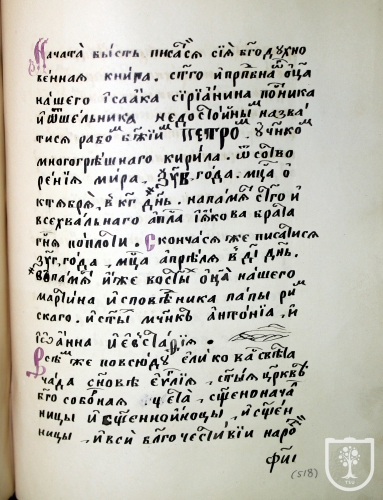 Начата бысть писатися сїѧ бг҃одухно
венная книга. ст҃го и прпⷣбнаⷢ ѻ҆ц҃а
нашего ісаака сирїанина постника
и ѿшельника недостойныⷨ назва
тися рабоⷨ бж҃їиⷨ ПЕТРОⷨ. учн҃коⷨ
многогрѣшнаго кирила. ѿ сотво
ренїя мира. года. мц҃а о
ктября, в кг҃ дн҃ь. на памѧⷮ ст҃го и
всехвальнаго ап҃ла їакова братїа
гн҃я по плоти. Скончася же писатися
года, мц҃а апрѣля в ді҃ дн҃ь.
на памѧⷮ иже во ст҃ыⷯ ѻц҃а нашего
мартина исповѣника папы ри
скаго. и ст҃ыⷯ мч҃нкъ антонїа, и
їѡанна и еѵстаѳїя.
Всѣⷨ же повсюду елико ва свѣта
чада сн҃овѣ еѵⷢ҇лїя, ст҃ыя црк҃вⷩ
бг҃о соборная. чета, сщ҃еннонача
ницы и сщ҃енноиноцы, и сщ҃ен
ницы, и вси блг҃очестивїи нароⷣ
фиі
(518)